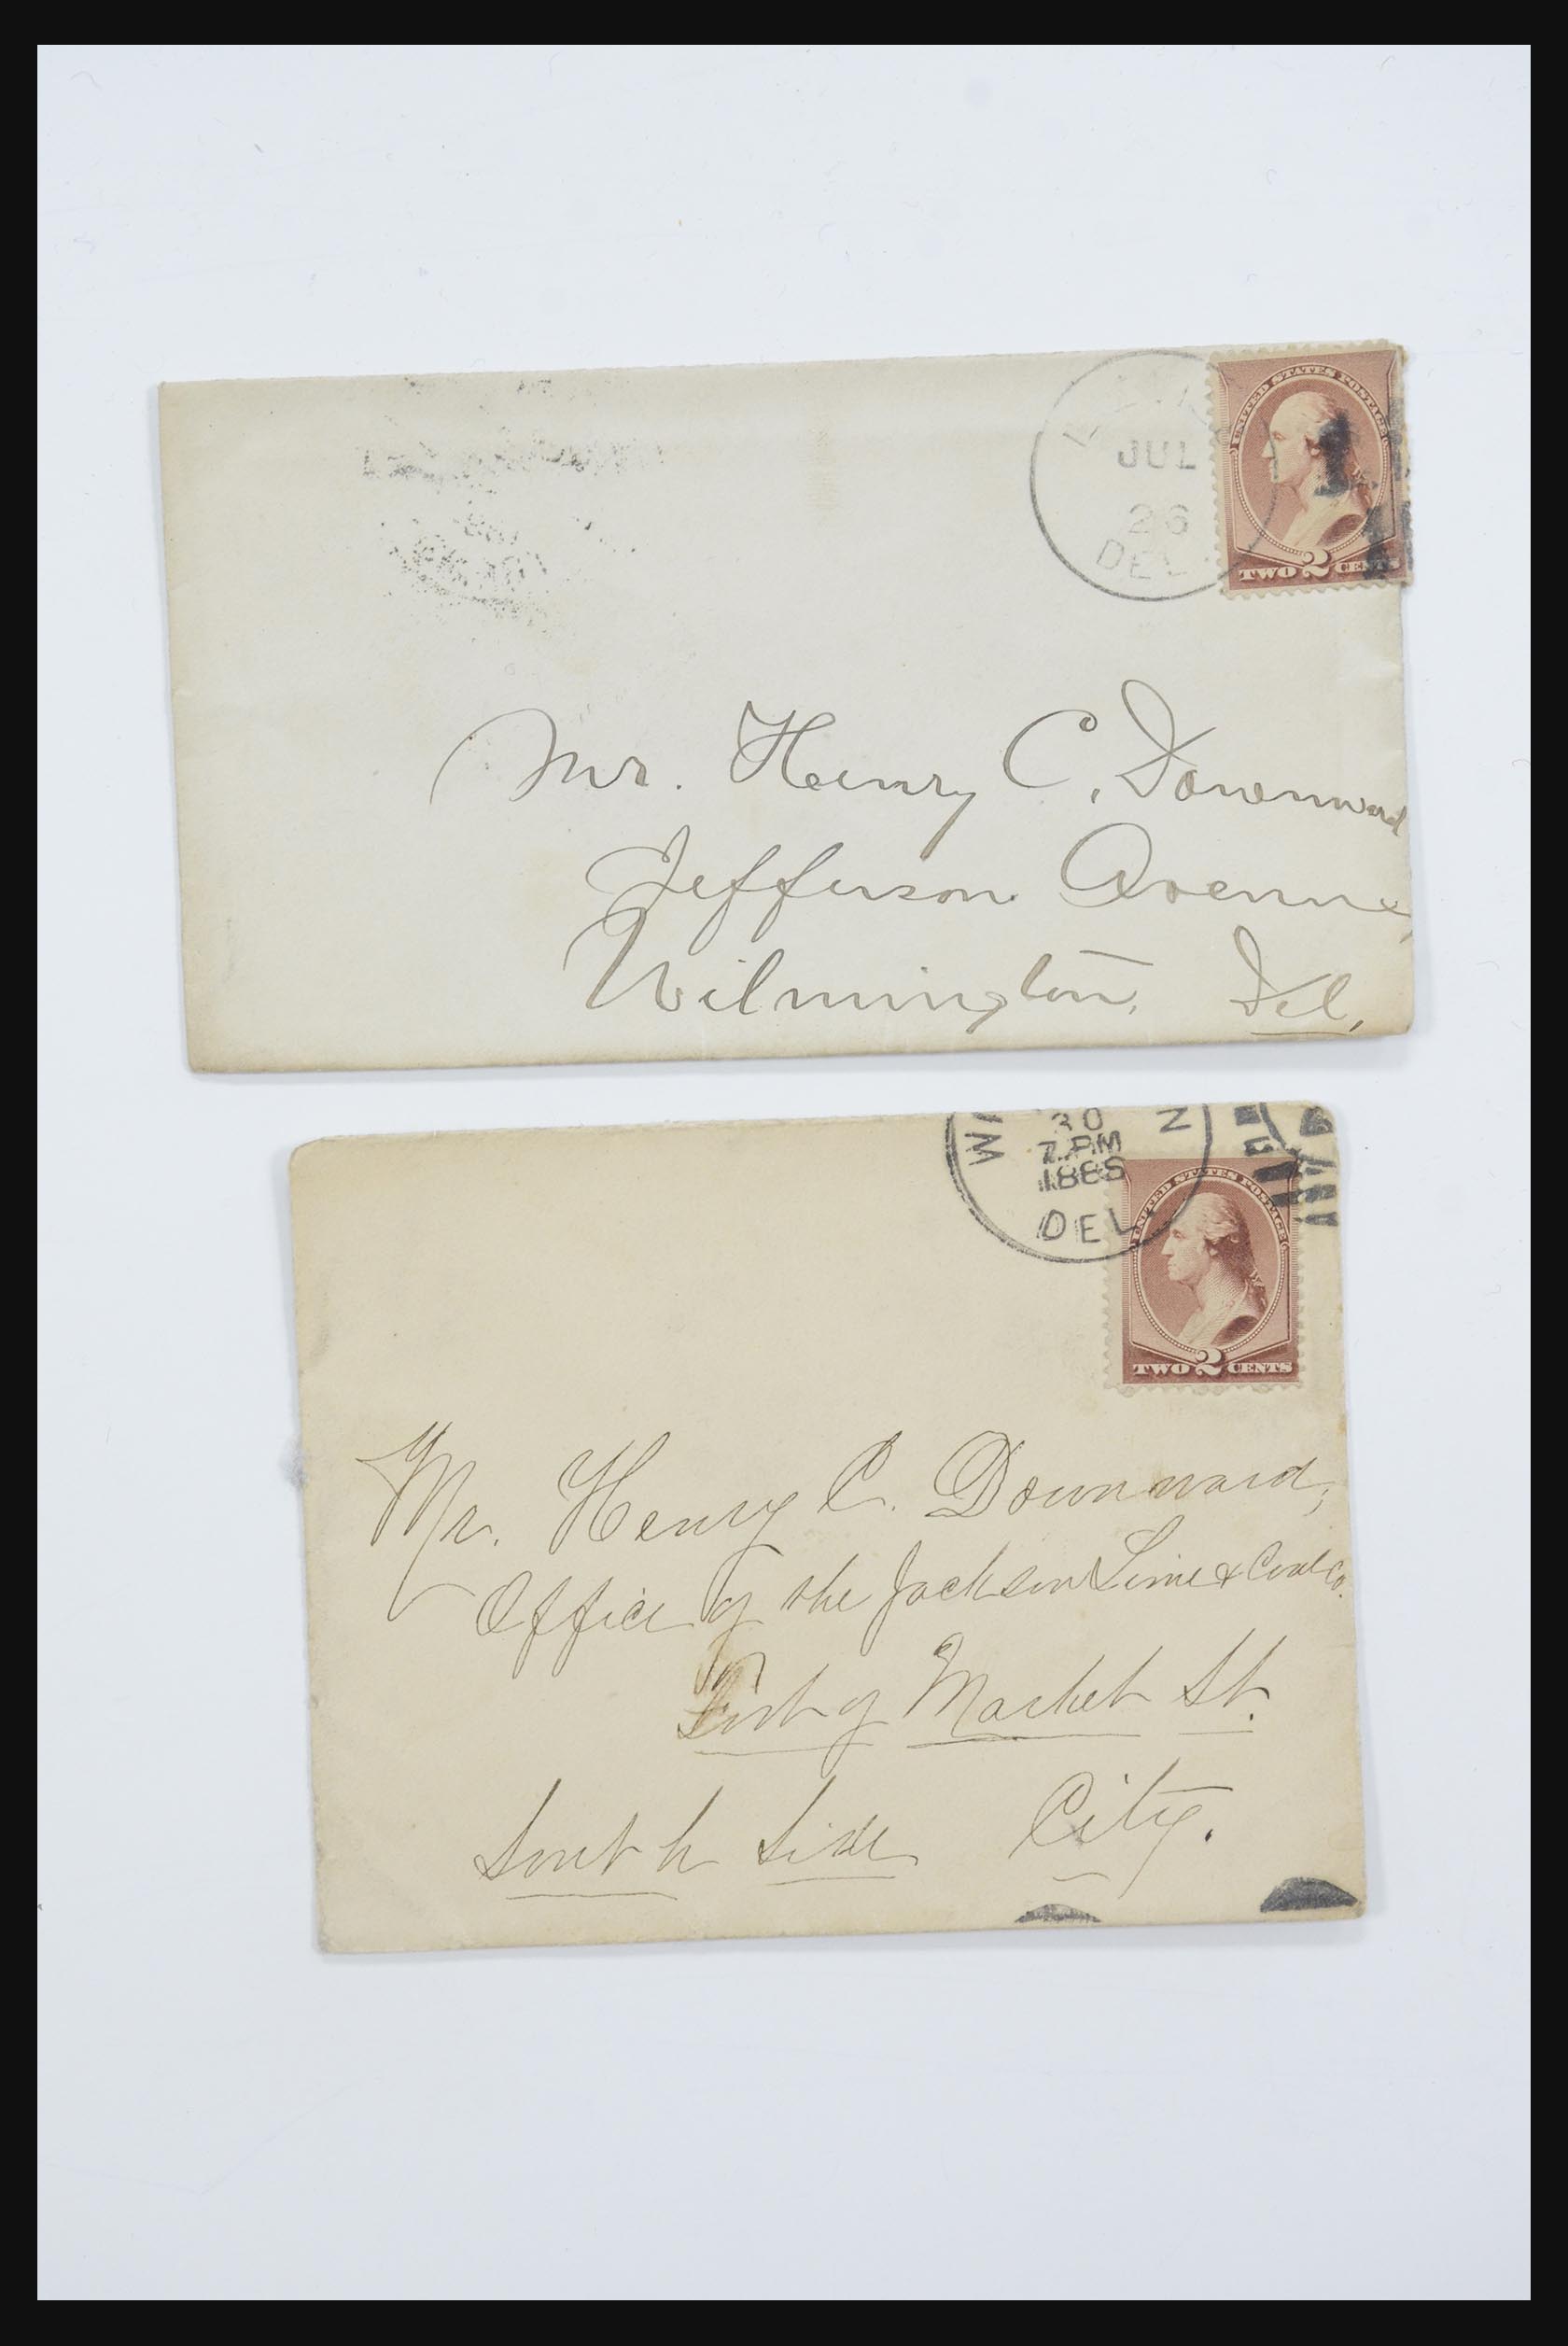 JUL
26
DEL
UNITED STATES POSTAGE
TWO 2 CENTS
Mr. Henry C. Downward
Jefferson Avenue,
Wilmington, Del.
30
7 PM
DEL
UNITED STATES POSTAGE
TWO 2 CENTS
Mr. Henry C. Downward,
Office of the Jackson Lime & Coal Co.
Foot of Market St.
South Side City.